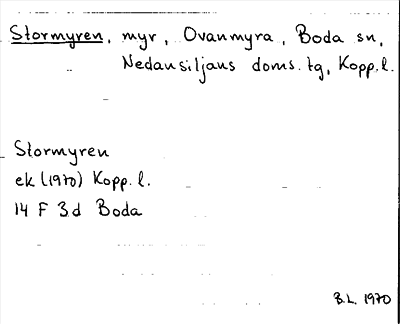 Stormyren, myr, Ovanmyra, Boda sn,
Nedansiljans doms. tg, Kopp. l.
Stormyren
ek (1970) Kopp. l.
14 F 3d Boda
B.L. 1970